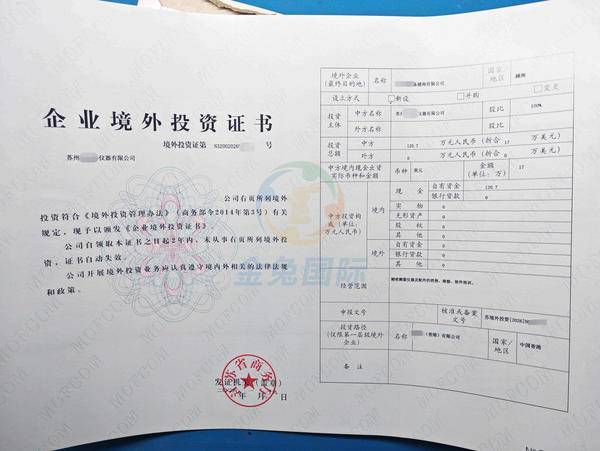 企业境外投资证书
境外投资证第 N32002020 号
苏州 仪器有限公司
公司右页所列境外
投资符合《境外投资管理办法》（商务部令2014年第3号）有关
规定，现予以颁发《企业境外投资证书》。
公司自领取本证书之日起2年内，未从事右页所列境外投
资，证书自动失效。
公司开展境外投资业务应认真遵守境内外相关的法律法规
和政策。
发证机关（盖章）
年 月 日
江苏省商务厅
境外企业
（最终目的地） 名称 越南有限公司 国家/
地区 越南
设立方式 新设 并购 变更
投资
主体 中方名称 苏州 仪器有限公司 股比 100%
外方名称 股比
投资
总额 中方 120.7 万元人民币（折合 17 万美元）
外方 0 万元人民币（折合 0 万美元）
中方境内现金出资
实际币种和金额 币种 美元 金额
（单位：万） 17
中方投资构
成（单位：
万元人民币） 境内 现金 自有资金 120.7
银行贷款 0
实物 0
无形资产 0
股权 0
其他 0
境外 自有资金 0
银行贷款 0
其他 0
经营范围
申报文号 核准或备案
文号 苏境外投资[2020]N
投资路径
（仅限第一层级境外
企业） 名称 （香港）有限公司 国家/
地区 中国香港
备注
金兔国际
WCCGOM